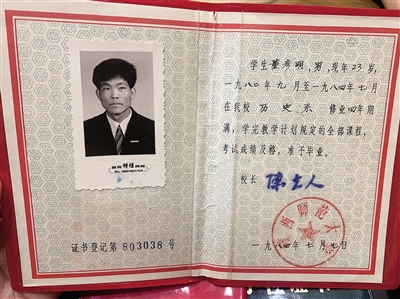 学生董 明，男，现年23岁，
一九八〇年九月至一九八四年七月
在我校 历史系 修业四年期
满，学完教学计划规定的全部课程，
考试成绩及格，准予毕业。
校长 陈立人
陕西师范大学
一九八四年七月七日
证书登记第 803038 号